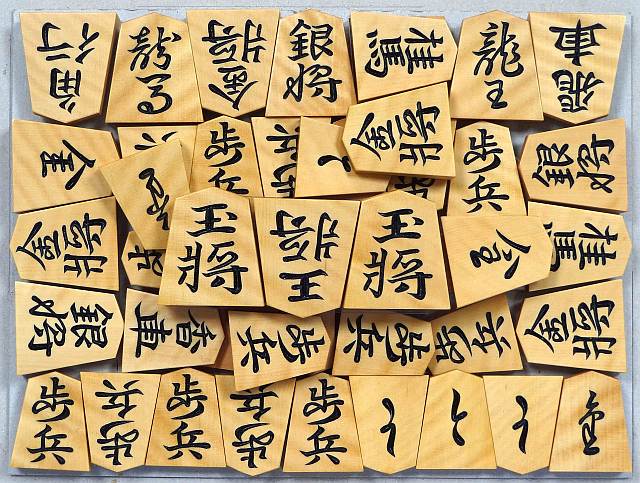 角行
龍馬
金将
銀将
桂馬
龍王
飛車
歩兵
と
金将
歩兵
銀将
金将
玉將
王将
王將
桂馬
銀将
香車
歩兵
歩兵
歩兵
金将
歩兵
歩兵
歩兵
歩兵
歩兵
と
と
と